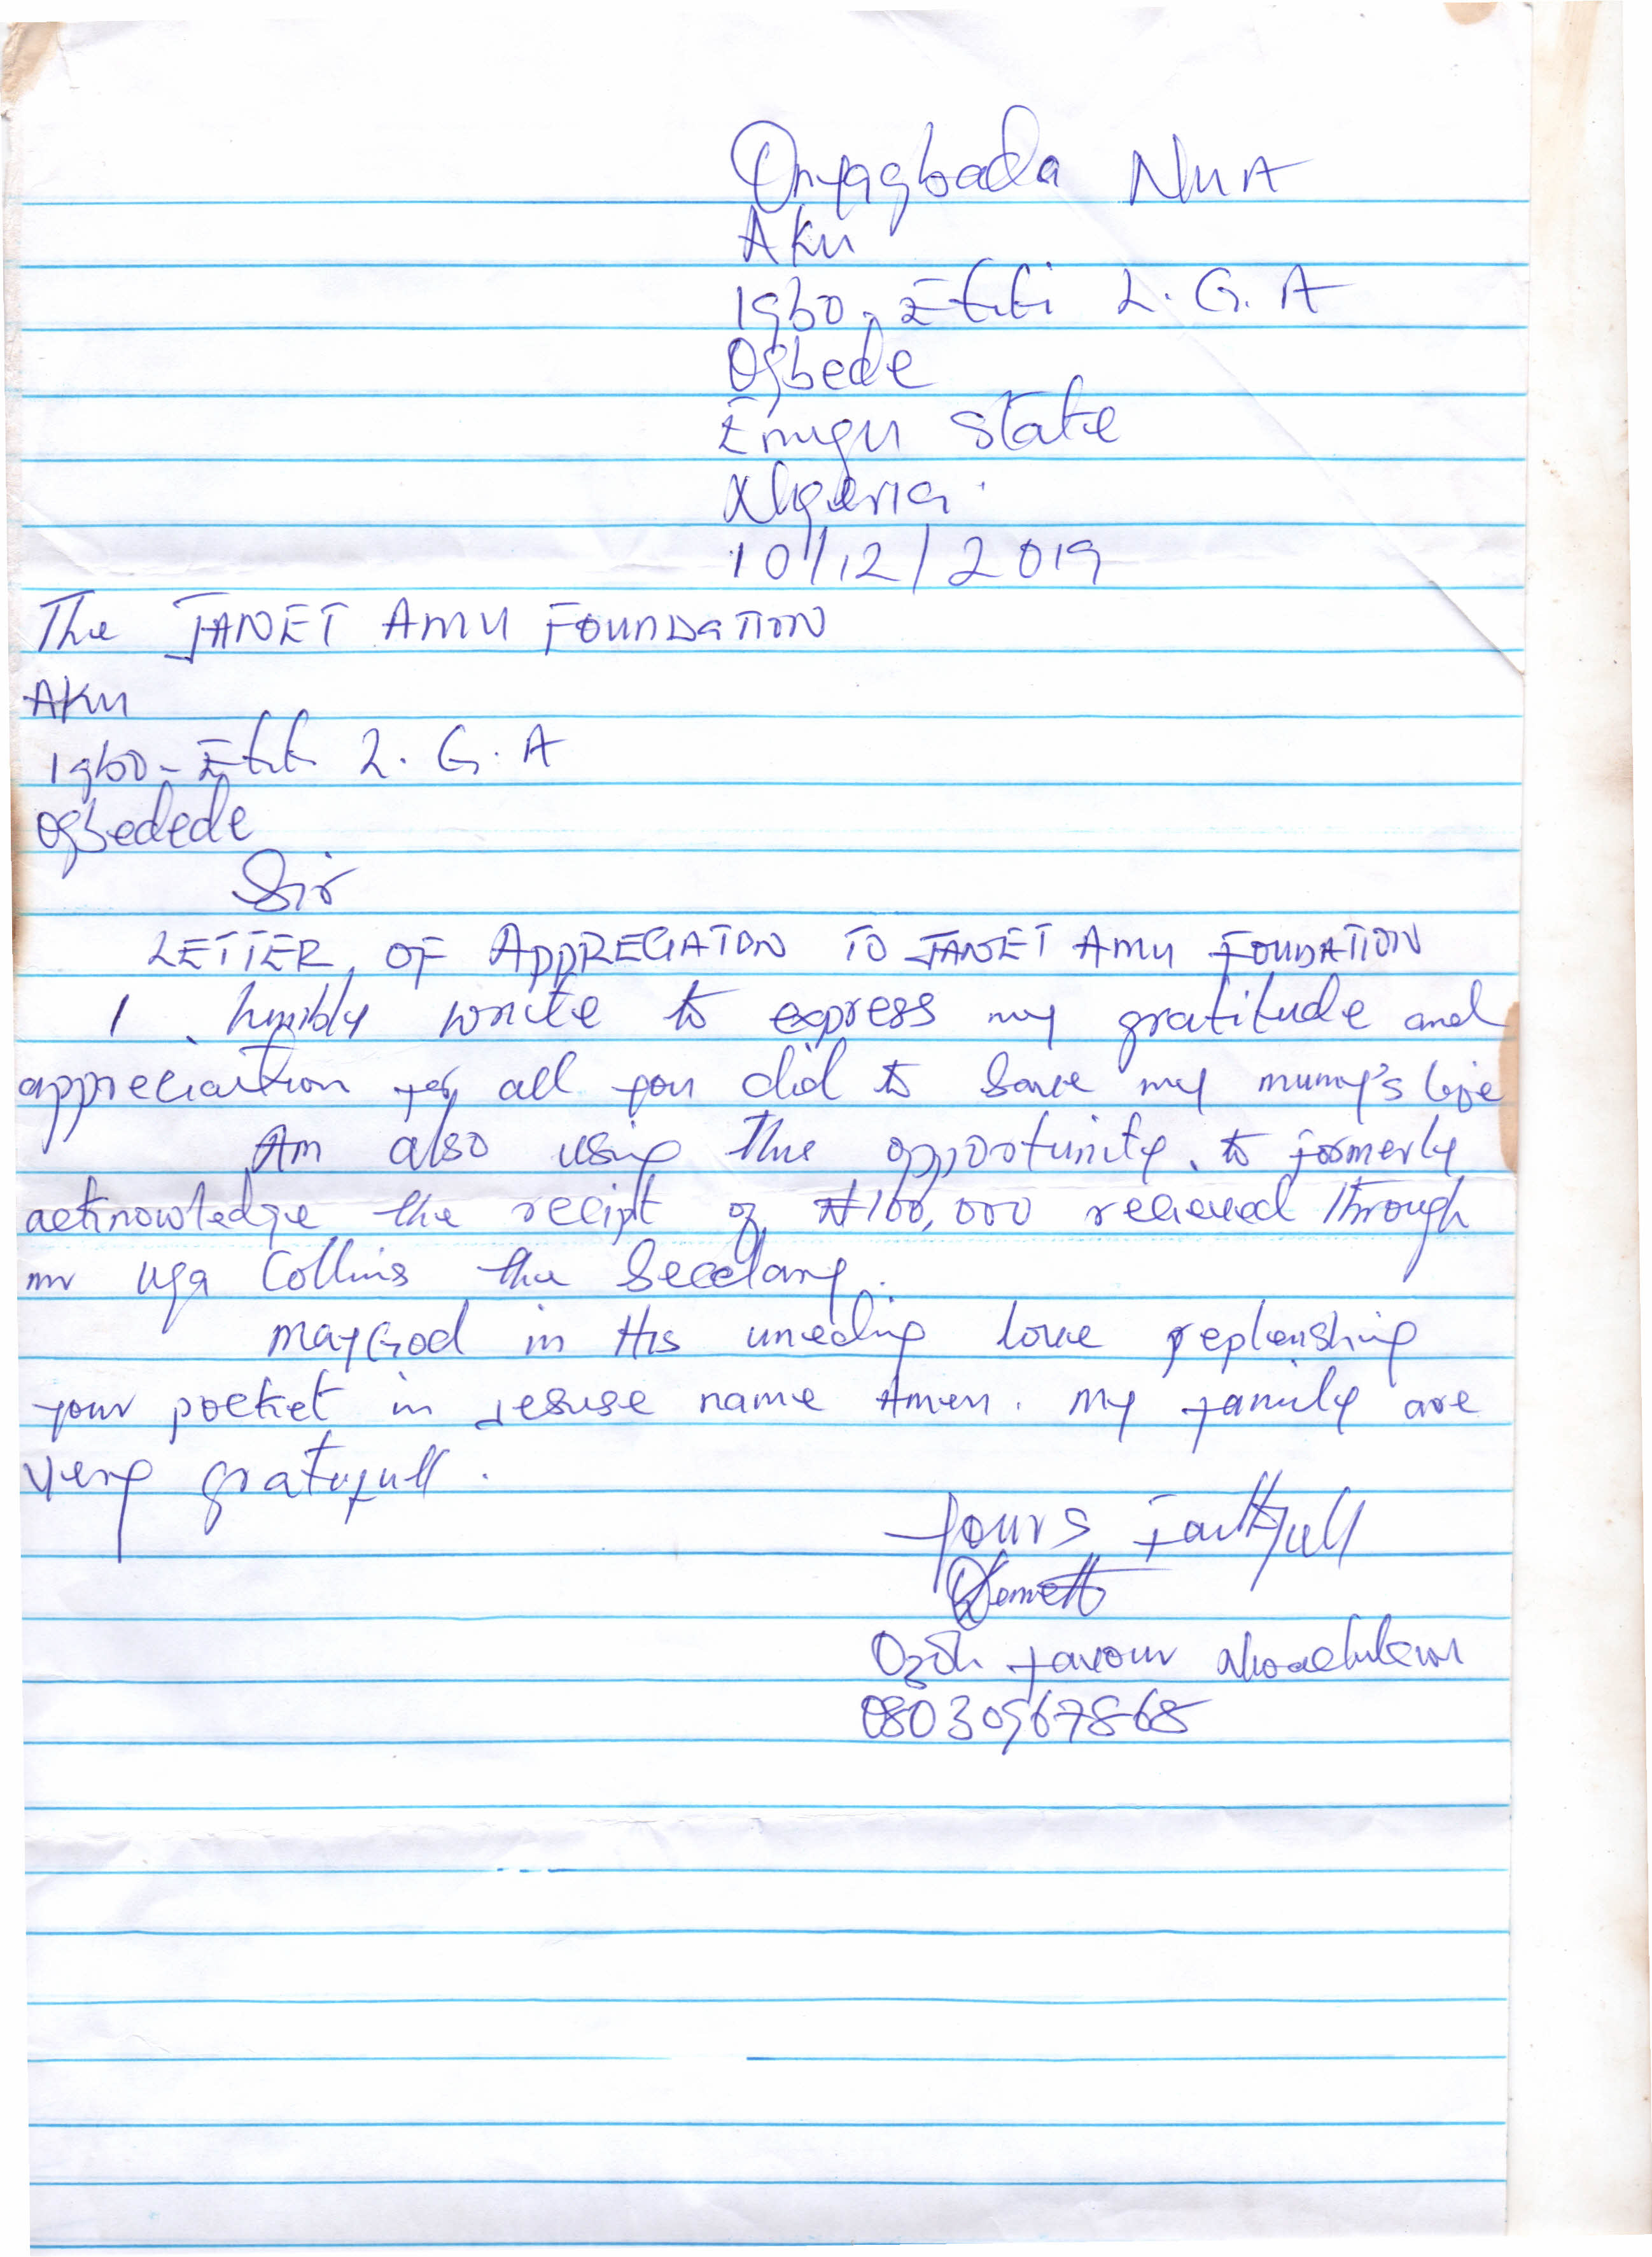 Onyagbada NuA
Aku
Igbo-Etiti L.G.A
Ogbede
Enugu state
Nigeria.
10/12/2019
The JANET AMU FOUNDATION
AKU
Igbo-Etiti L.G.A
Ogbedede
Sir
LETTER OF APPRECIATON TO JANET AMU FOUNDATION
I humbly write to express my gratitude and
appreciation for all you did to save my mumy's life
Am also using this opportunity to formerly
acknowledge the recipt of ₦100,000 recieved through
mr Uga Collins the Secetary.
May God in His unending love replenishing
your pocket in Jesuse name Amen. My family are
very gratefull.
Yours Faithfull
Ozoh Favour
08030567868